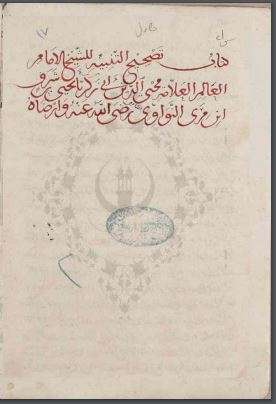 كتاب تصحيح التنبيه للشيخ الامام
العالم العلامة محيي الدين ابي زكريا يحيى بن شرف
ابن مري النواوي رضي الله عنه وارضاه